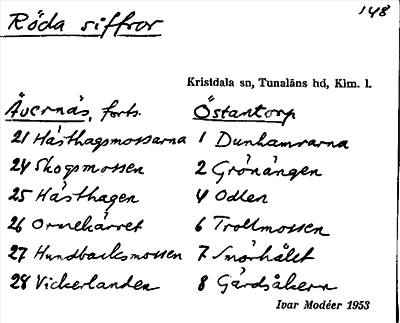 148
Röda siffror
Kristdala sn, Tunaläns hd, Klm. l.
Ävernäs, forts.
21 Hästhagsmossarna
24 Skogsmossen
25 Hästhagen
26 Ornekärret
27 Hundbacksmossen
28 Vickerlanden
Östantorp
1 Dunhamrarna
2 Grönängen
4 Odlen
6 Trollmossen
7 Smörhålet
8 Gärdsåkern
Ivar Modéer 1953